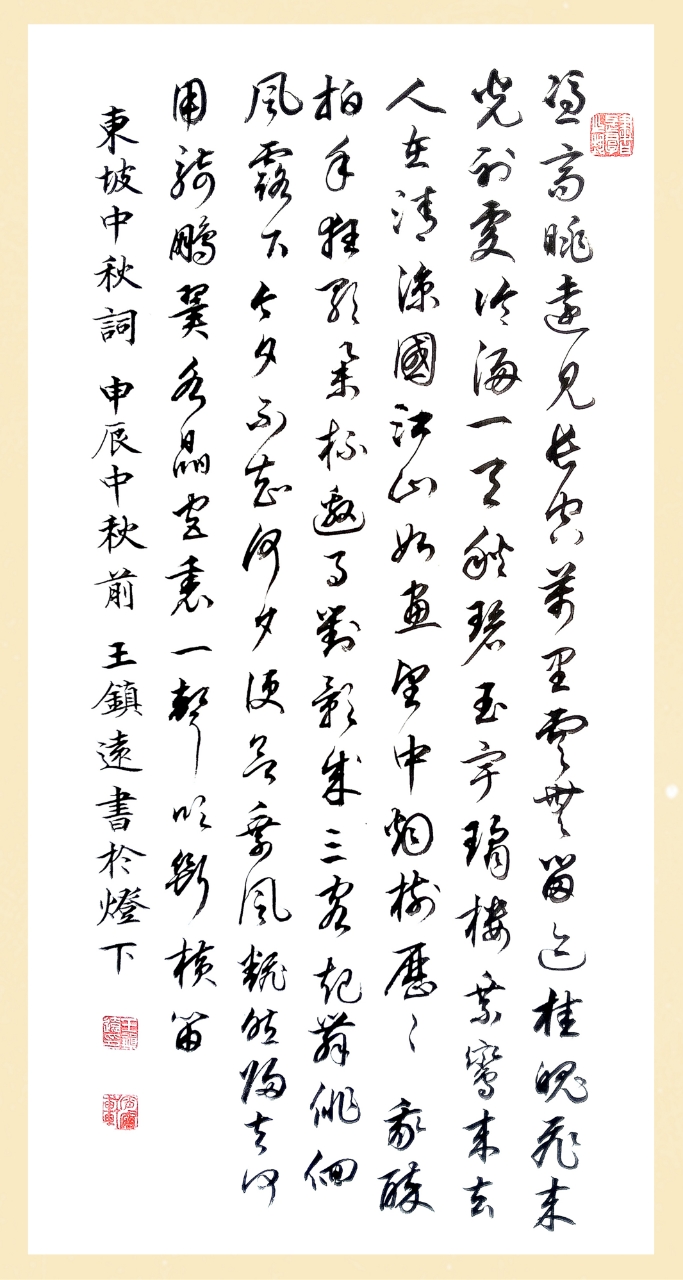 憑高眺遠見長空萬里雲無留迹桂魄飛來
光射處冷浸一天秋碧玉宇瓊樓乘鸞來去
人在清涼國江山如畫望中烟樹歷〻 我醉
拍手狂歌舉杯邀月對影成三客起舞徘徊
風露下今夕不知何夕便欲乘風翻然歸去何
用騎鵬翼水晶宮裏一聲吹斷橫笛
東坡中秋詞 甲辰中秋前 王鎮遠書於燈下